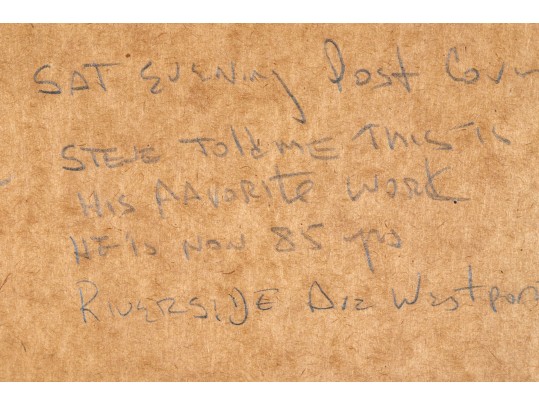 SAT EVENING Post Cov
STEVE Told ME THIS IS
HIS FAVORITE WORK
HE'S NOW 85 yrs
RIVERSIDE Ave Westpor